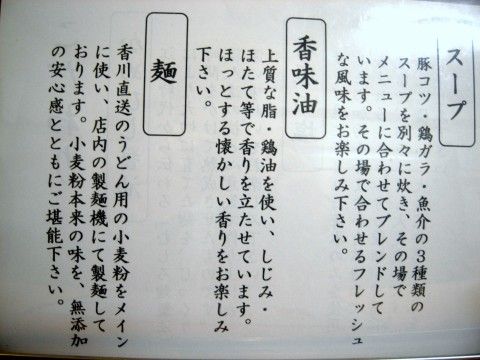 スープ
豚コツ・鶏ガラ・魚介の3種類の
スープを別々に炊き、その場で
メニューに合わせてブレンドして
います。その場で合わせるフレッシュ
な風味をお楽しみ下さい。
香味油
上質な脂・鶏油を使い、しじみ・
ほたて等で香りを立たせています。
ほっとする懐かしい香りをお楽しみ
下さい。
麺
香川直送のうどん用の小麦粉をメイン
に使い、店内の製麺機にて製麺して
おります。小麦粉本来の味を、無添加
の安心感とともにご堪能下さい。